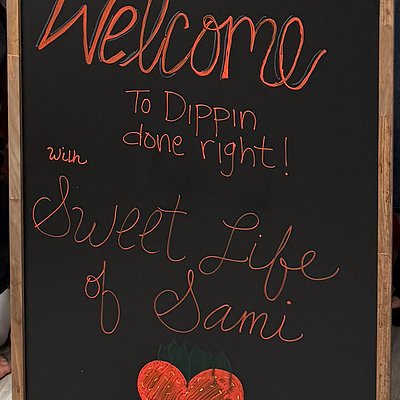 Welcome
To Dippin
done right!
with
Sweet Life
of Sami